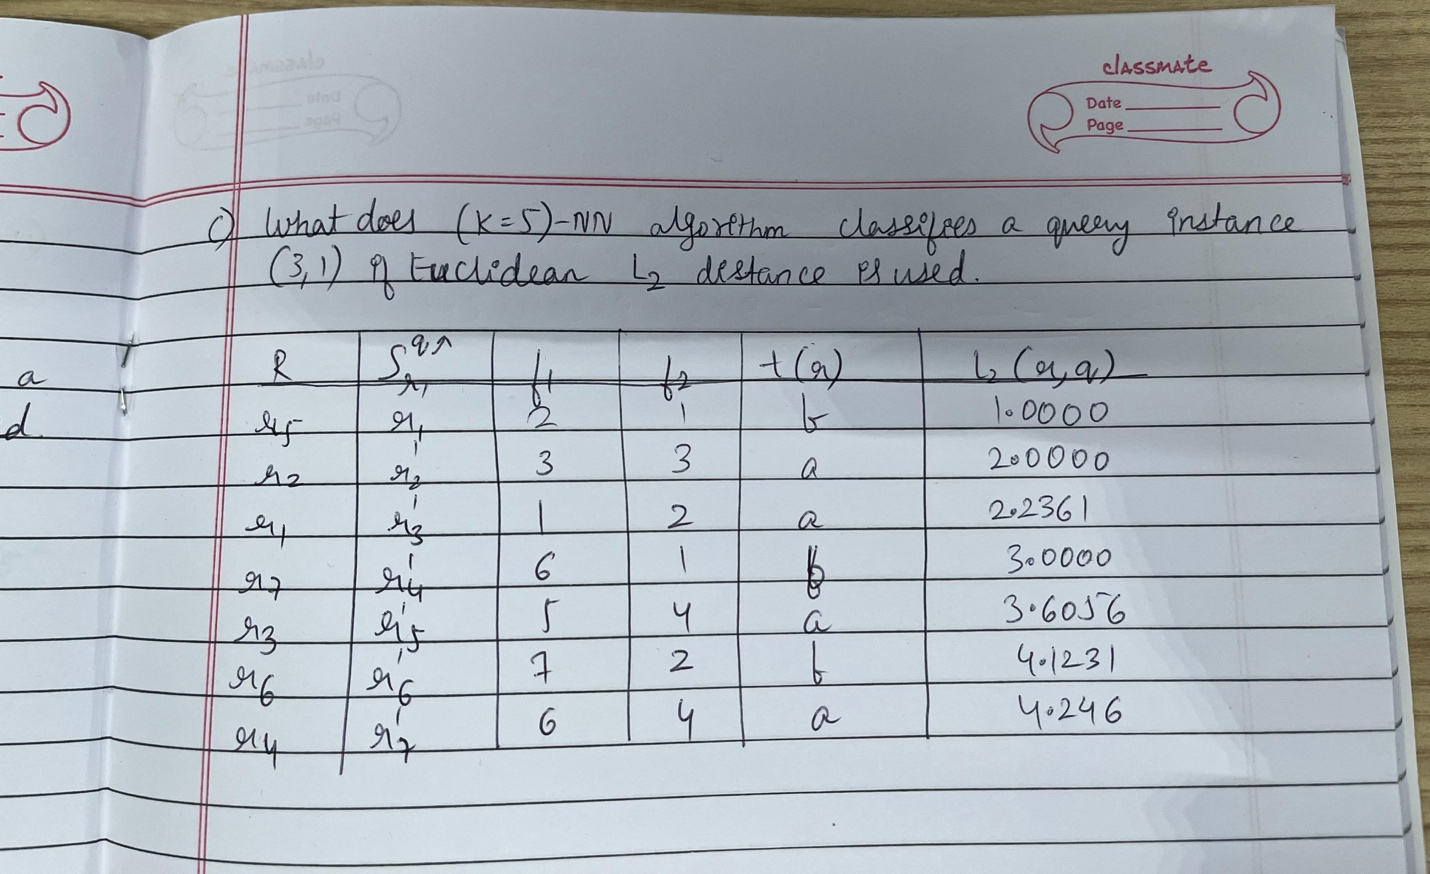 classmate
Date
Page
c) What does (K=5)-NN algorithm classifies a query instance
(3,1) if Euclidean L₂ distance is used.
R f₁ f₂ t(r) L₂(r,q)
r₅ r₁' 2 1 b 1.0000
r₂ r₂' 3 3 a 2.0000
r₁ r₃' 1 2 a 2.2361
r₇ r₄' 6 1 b 3.0000
r₃ r₅' 5 4 a 3.6056
r₆ r₆' 7 2 b 4.1231
r₄ r₇' 6 4 a 4.246
a
d.